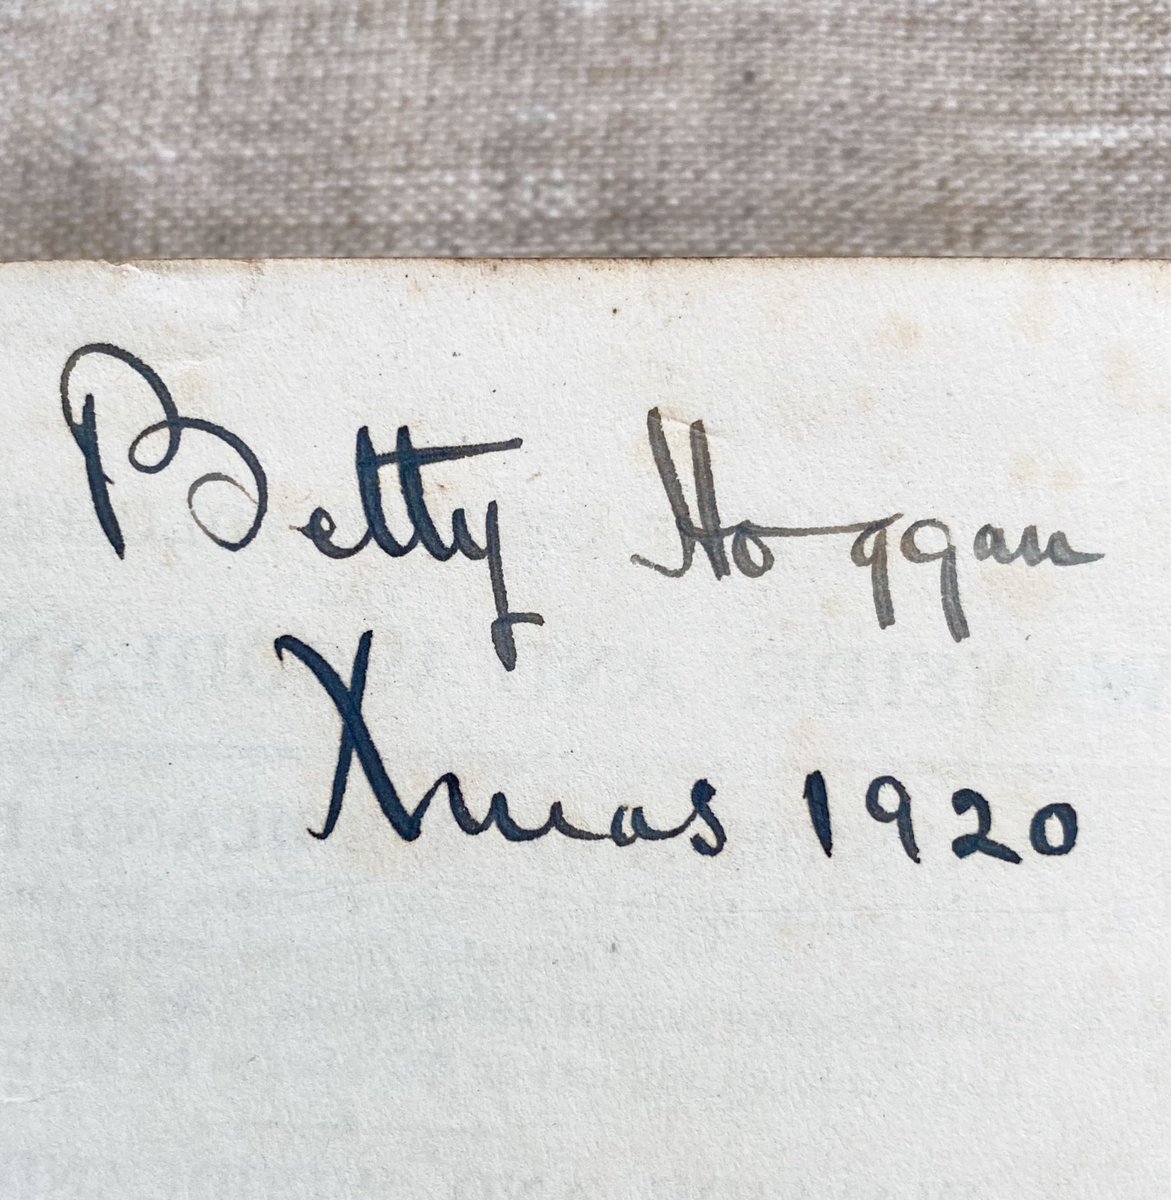 Betty Hoggan
Xmas 1920